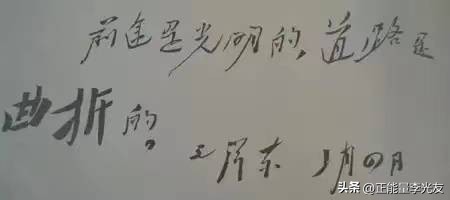 前途是光明的,道路是
曲折的。
毛泽东 1月四日
头条 @正能量李光友